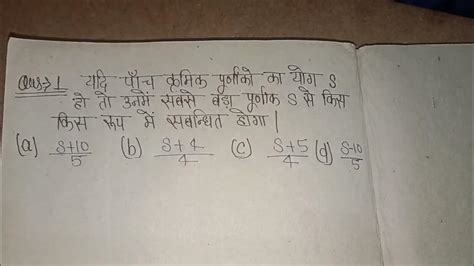 Ques→1 यदि पाँच क्रमिक पूर्णांको का योग S
हो तो उनमें सबसे बड़ा पूर्णांक S से किस
किस रूप में सम्बन्धित होगा |
(a) S+10/5 (b) S+4/4 (c) S+5/4 (d) S-10/5